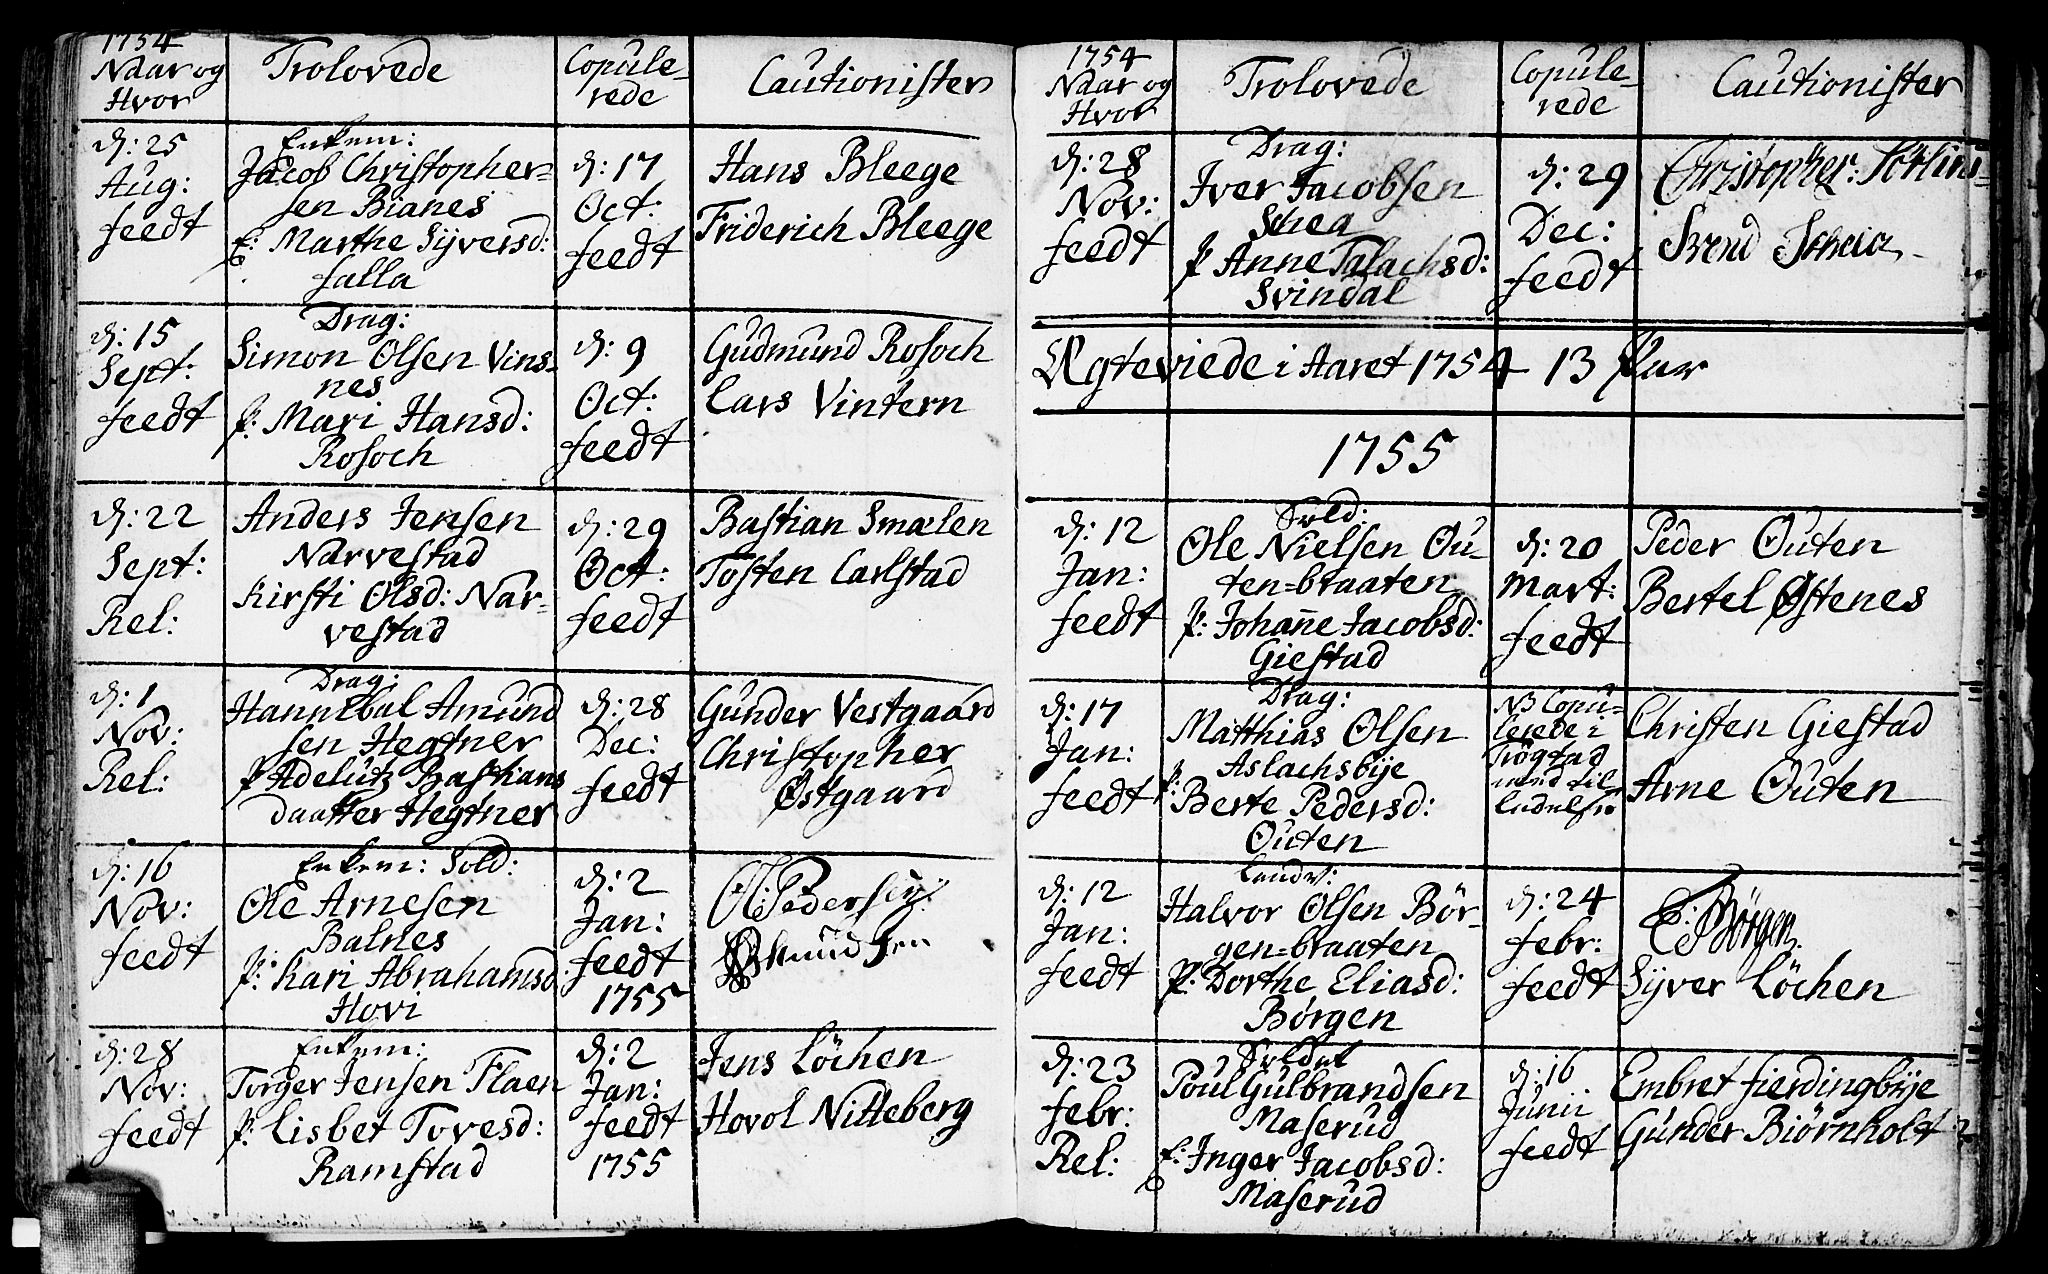 1754
Naar og
Hvor
Trolovede
Copule-
rede
Cautionister
d: 25
Aug:
feedt
Enkem:
Jacob Christopher-
sen Bianes
E: Marthe Syversd:
falla
d: 17
Oct:
feedt
Hans Bleege
Friderich Bleege
d: 15
Sept:
feedt
Drag:
Simon Olsen Vins-
nes
P: Mari Hansd:
Rosoch
d: 9
Oct:
feedt
Gudmund Rosoch
Lars Vintern
d: 22
Sept:
Rel:
Anders Jensen
Narvestad
Kirsti Olsd: Nar-
vestad
d: 29
Oct:
feedt
Bastian Smælen
Tosten Carlstad
d: 1
Nov:
Rel:
Drag:
Hannibal Amund
sen Hegtner
P Adelutz Bastians
daatter Hegtner
d: 28
Dec:
feedt
Gunder Vestgaard
Christopher
Østgaard
d: 16
Nov:
feedt
Enkem: Sold:
Ole Arnesen
Balnes
P: Kari Abrahamsd:
Hovi
d: 2
Jan:
feedt
1755
Ol: Pedersen:
d: 28
Nov:
feedt
Enkem:
Torger Jensen Flaen
P: Lisbet Tovesd:
Ramstad
d: 2
Jan:
feedt
1755
Jens Löchen
Hovol Nitteberg
1754
Naar og
Hvor
Trolovede
Copule-
rede
Cautionister
d: 28
Nov:
feedt
Drag:
Iver Jacobsen
Skea
P Anne Talachsd:
Svindal
d: 29
Dec:
feedt
Christopher:
Svend
Ægteviede i Aaret 1754 13 Par
1755
d: 12
Jan:
feedt
Sold:
Ole Nielsen Ou-
ten=braaten
P: Johanne Jacobsd:
Giestad
d: 20
Mart:
feedt
Peder Outen
Bertel Østenes
d: 17
Jan:
feedt
Drag:
Matthias Olsen
Aslachsbye
P: Berte Pedersd:
Outen
NB Copu-
lerede i
Trögstad
med til
ladelse
Christen Giestad
Arne Outen
d: 12
Jan:
feedt
Landv:
Halvor Olsen Bör-
gen=braaten
P: Dorthe Eliasd:
Børgen
d: 24
febr:
feedt
E: Börgen.
Syver Löchen
d: 23
febr:
Rel:
Soldat
Poul Gulbrandsen
Maserud
E: Inger Jacobsd:
Maserud
d: 16
Junii
feedt
Embret fierdingbye
Gunder Biørnholt